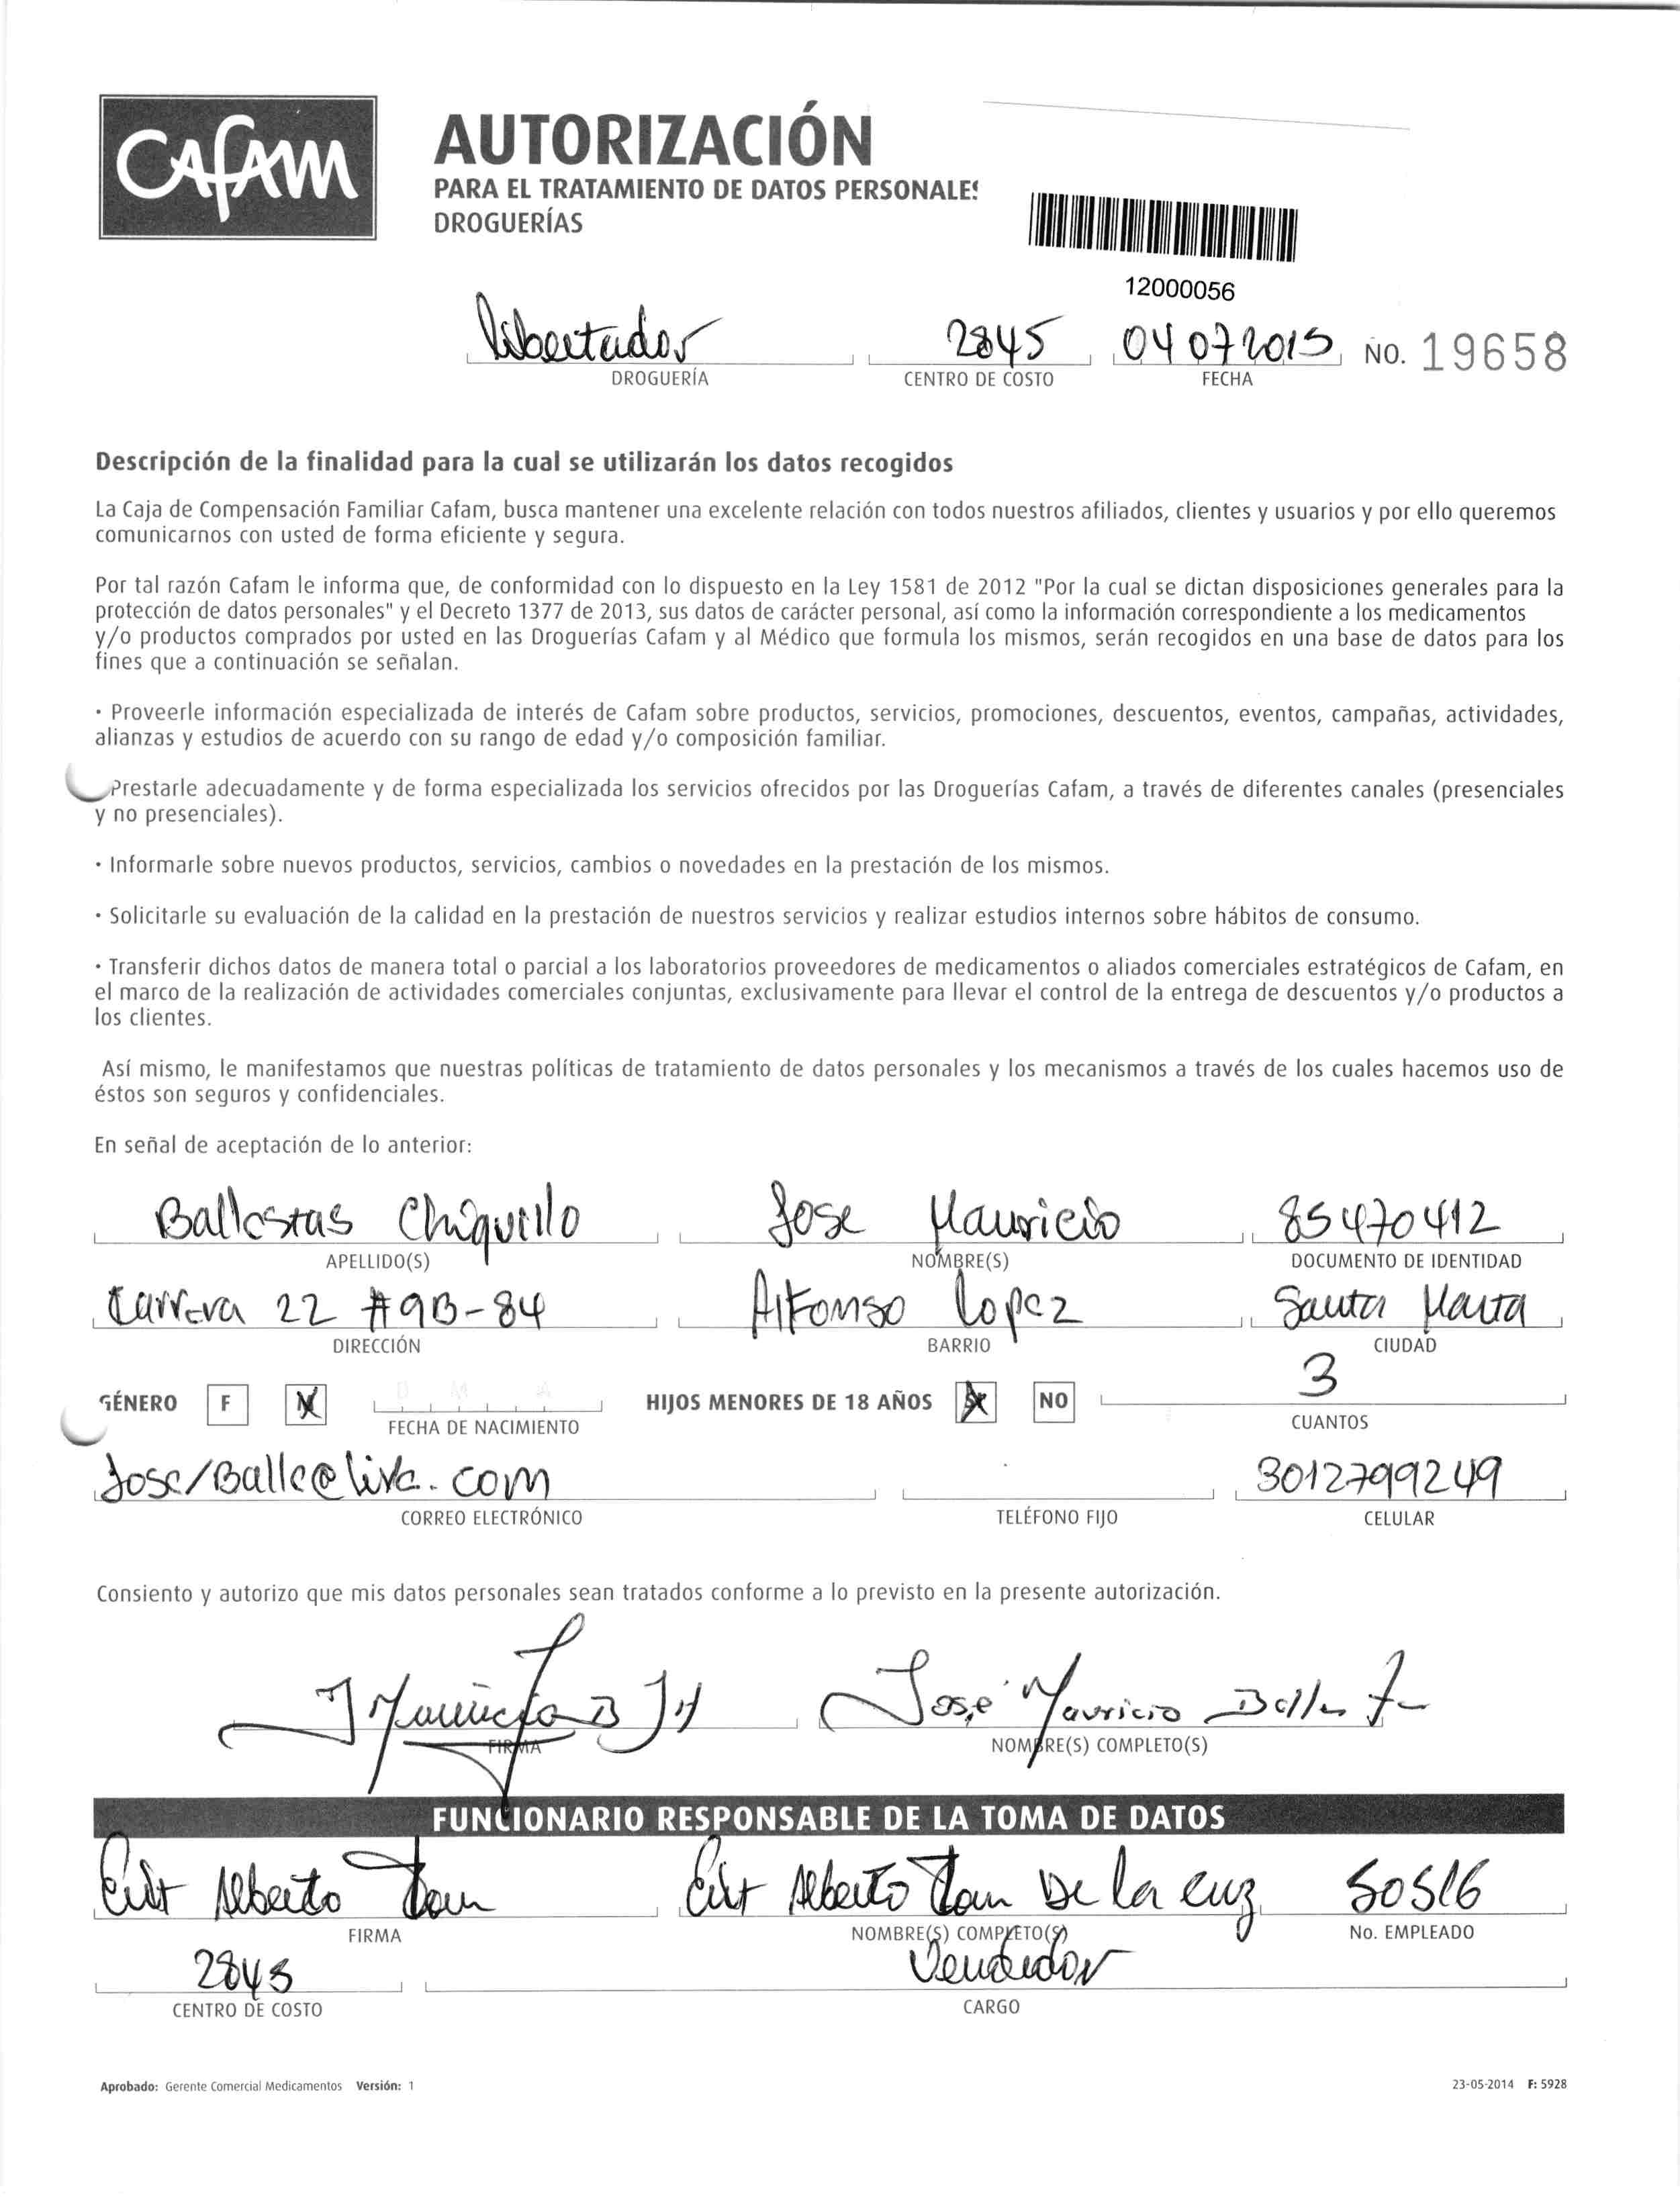 CAFAM
AUTORIZACIÓN
PARA EL TRATAMIENTO DE DATOS PERSONALES
DROGUERÍAS
12000056
libertador 2845 04 07 2015 NO. 19658
DROGUERÍA CENTRO DE COSTO FECHA
Descripción de la finalidad para la cual se utilizarán los datos recogidos
La Caja de Compensación Familiar Cafam, busca mantener una excelente relación con todos nuestros afiliados, clientes y usuarios y por ello queremos
comunicarnos con usted de forma eficiente y segura.
Por tal razón Cafam le informa que, de conformidad con lo dispuesto en la Ley 1581 de 2012 "Por la cual se dictan disposiciones generales para la
protección de datos personales" y el Decreto 1377 de 2013, sus datos de carácter personal, así como la información correspondiente a los medicamentos
y/o productos comprados por usted en las Droguerías Cafam y al Médico que formula los mismos, serán recogidos en una base de datos para los
fines que a continuación se señalan.
· Proveerle información especializada de interés de Cafam sobre productos, servicios, promociones, descuentos, eventos, campañas, actividades,
alianzas y estudios de acuerdo con su rango de edad y/o composición familiar.
Prestarle adecuadamente y de forma especializada los servicios ofrecidos por las Droguerías Cafam, a través de diferentes canales (presenciales
y no presenciales).
· Informarle sobre nuevos productos, servicios, cambios o novedades en la prestación de los mismos.
· Solicitarle su evaluación de la calidad en la prestación de nuestros servicios y realizar estudios internos sobre hábitos de consumo.
· Transferir dichos datos de manera total o parcial a los laboratorios proveedores de medicamentos o aliados comerciales estratégicos de Cafam, en
el marco de la realización de actividades comerciales conjuntas, exclusivamente para llevar el control de la entrega de descuentos y/o productos a
los clientes.
Así mismo, le manifestamos que nuestras políticas de tratamiento de datos personales y los mecanismos a través de los cuales hacemos uso de
éstos son seguros y confidenciales.
En señal de aceptación de lo anterior:
Ballestas Chiquillo Jose Mauricio 85470412
APELLIDO(S) NOMBRE(S) DOCUMENTO DE IDENTIDAD
Carrera 22 #9B-84 Alfonso Lopez Santa Marta
DIRECCIÓN BARRIO CIUDAD
GÉNERO F M D M A HIJOS MENORES DE 18 AÑOS NO 3
FECHA DE NACIMIENTO CUANTOS
Jose/Balle@live.com 3012799249
CORREO ELECTRÓNICO TELÉFONO FIJO CELULAR
Consiento y autorizo que mis datos personales sean tratados conforme a lo previsto en la presente autorización.
José Mauricio
FIRMA NOMBRE(S) COMPLETO(S)
FUNCIONARIO RESPONSABLE DE LA TOMA DE DATOS
Alberto Alberto De la Cruz 50516
FIRMA NOMBRE(S) COMPLETO(S) No. EMPLEADO
2845 Vendedor
CENTRO DE COSTO CARGO
Aprobado: Gerente Comercial Medicamentos Versión: 1 23-05-2014 F: 5928